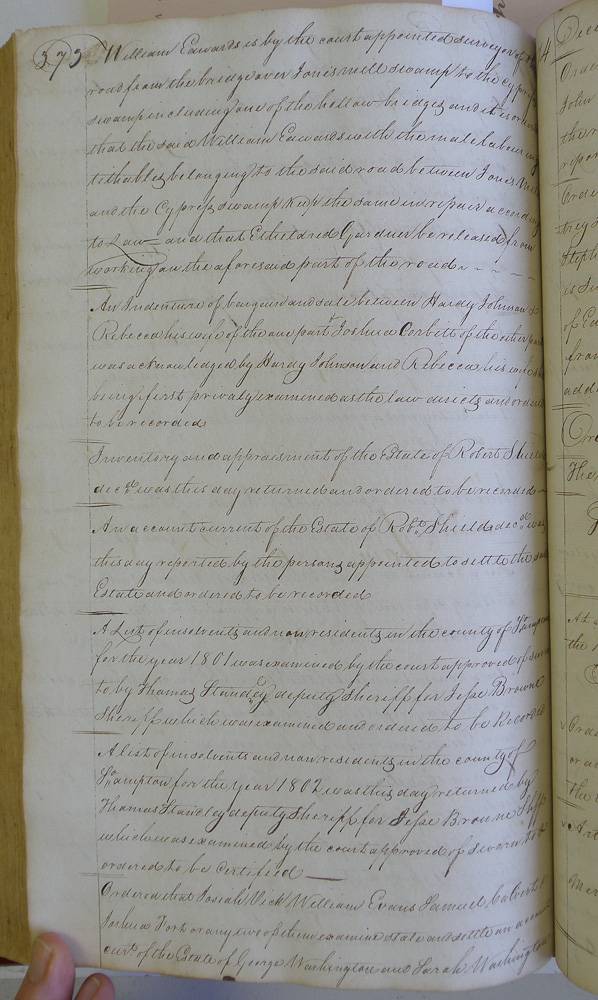 373 William Edwards is by the court appointed surveyor of the
road from the bridge over Jones mill swamp to the Cypress
swamp including one of the hollow bridges and it is ordered
that the said William Edwards with the male labouring
tithables belonging to the said road between Jones Mill
and the Cypress swamp keep the same in repair according
to Law and that Etheldred Gardner be released from
working on the aforesaid part of the road
An Indenture of bargain and sale between Hardy Johnson &
Rebecca his wife of the one part & Joshua Corbitt of the other part
was acknowledged by Hardy Johnson and Rebecca his wife she
being first privaly examined as the law directs and ordered
to be recorded
Inventory and appraisment of the Estate of Robert Shield
decd. was this day returned and ordered to be recorded
An account current of the Estate of Robt. Shield decd. was
this day reported by the persons appointed to settle the said
Estate and ordered to be recorded
A List of insolvents and non residents in the county of Soampton
for the year 1801 was examined by the court approved of sworn
to by Thomas Standley deputy Sheriff for Jesse Browne
Sheriff which was examined and ordered to be Recorded
A list of insolvents and non residents in the county of
Soampton for the year 1802 was this day returned by
Thomas Standley deputy Sheriff for Jesse Browne Shff
which was examined by the court approved of sworn to &
ordered to be Certified
Ordered that Josiah Vick William Evans Samuel Calvert &
Joshua Fort or any two of them examine state and settle an account
curt. of the Estate of George Washington and Sarah Washington